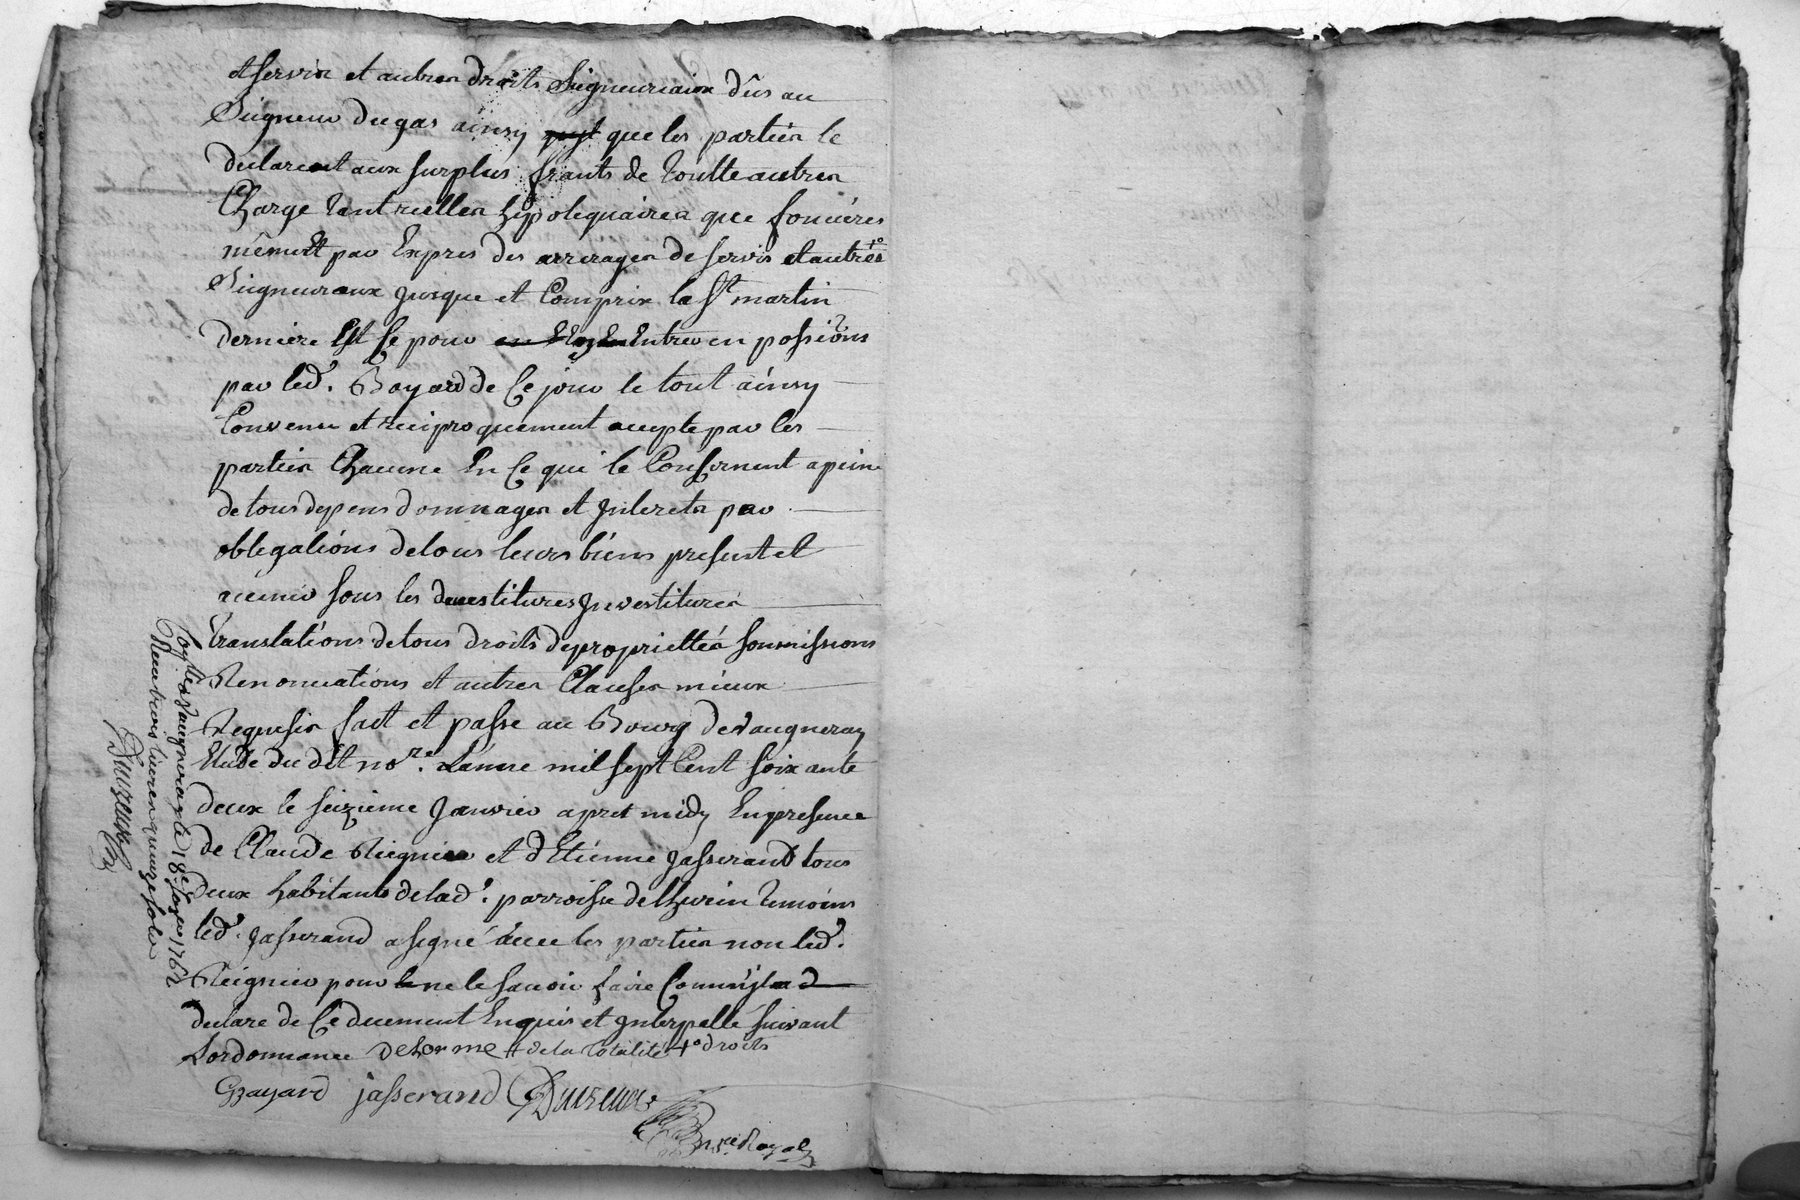 et servix et autres droits Seigneuriaux dûs au
Seigneur Dugas ainsy que les parties le
declarent aux surplus frants de Toutte autres
Charge Tant reelles hypotequaires que foncières
mêment par Expres des arrerages de servis et autres 1°
Seigneuraux jusque et Comprix la St martin
derniere Est Ce pour Entrer en possions
par led. Bayard de Ce jour le tout ainsy
Convenu et reciproquement accepte par les
parties Chacune En Ce qui le Consernent a peine
de tous depens dommages et Interets par
oblegations de tous leurs biens present et
avenir sous les devestitures Investitures
translations de tous droits de propriettés soumissions
Renonciations et autres Clauses mieux
Requises fait et passe au Bourg de Vaugneray
Etude du dit nore. L'année mil sept Cent soixante
deux le seizieme Janvier apret midy En presence
de Claude Reignier et d'Etienne Jasserand tous
deux habitants de lad. parroisse de thurin Temoins
led. Jasserand a signé avec les parties non led.
Reignier pour ne le savoir faire Comme il a
declare de Ce deuement Enquis et Interpellé suivant
L'ordonnance Delorme + de la Totalité + 1° droits
Bayard jasserand
Nre. Royal
Vaugneray le 18e Janv. 1762
Reçu trois livres quinze sols